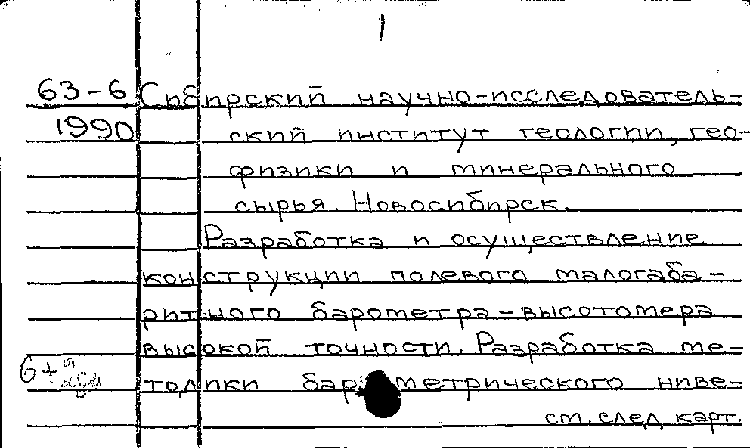 1
63-6 Сибирский научно-исследователь-
1990 ский институт геологии, гео-
физики и минерального
сырья. Новосибирск.
Разработка и осуществление
конструкции полевого малогаба-
ритного барометра-высотомера
высокой точности. Разработка ме-
тодики барометрического ниве-
см. след карт.